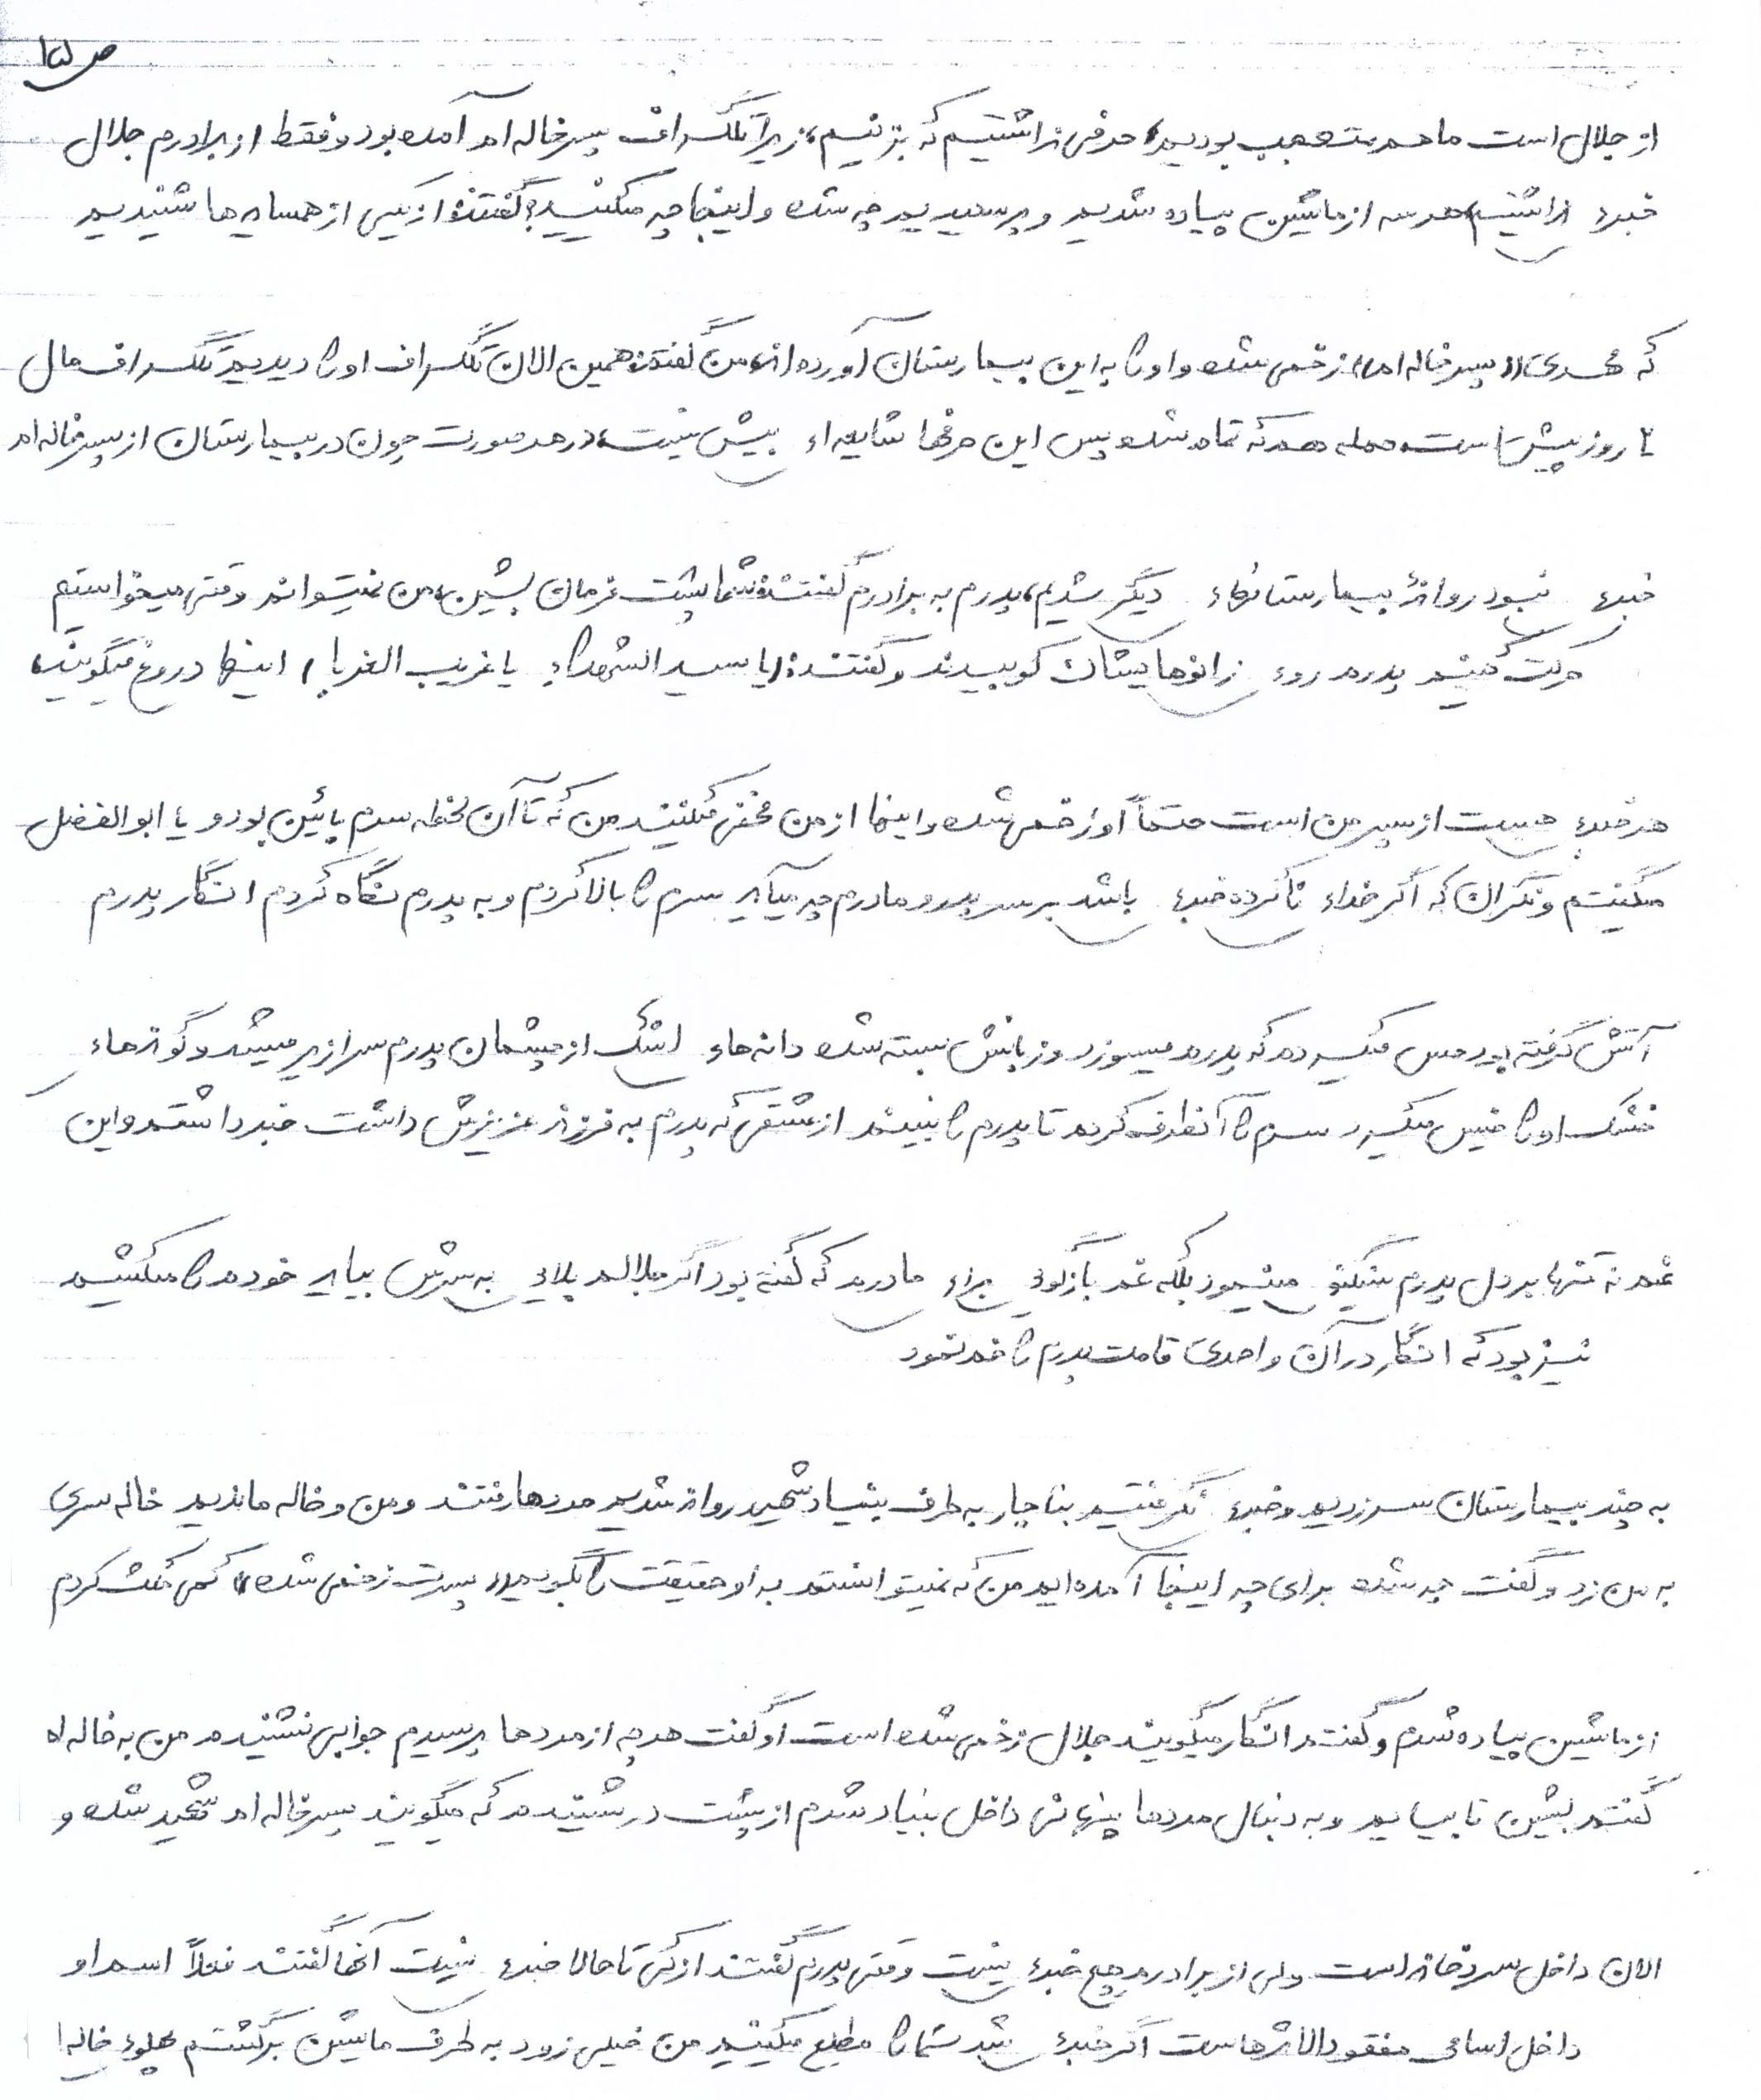 ص ۱۵
از جلال است ما هم متعجب بودیم، حرفی نداشتیم که بزنیم، زیرا تلگراف پسرخاله ام آمده بود و فقط از برادرم جلال
خبری نداشتیم، هر سه از ماشین پیاده شدیم و پرسیدیم چه شده و اینجا چه میکنید؟ گفتند: از یکی از همسایه ها شنیدیم
که محمدی «پسرخاله ام» زخمی شده و او را به این بیمارستان آورده اند، من گفتم: همین الان تلگراف او را دیدیم تلگراف مال
روز پیش است، حمله هم که تمام شده پس این حرفها شایعه ای بیش نیست، در هر صورت چون در بیمارستان از پسرخاله ام
خبری نبود روانۀ بیمارستانهای دیگر شدیم، پدرم به برادرم گفتند: شما پشت فرمان بشین، من نمیتوانم وقتی میخواستیم
حرکت کنیم پدرم روی زانوهایشان کوبیدند و گفتند: (یا سید الشهداء یا غریب الغربا) اینها دروغ میگویند،
هر خبری هست از پسر من است حتماً او زخمی شده و اینها از من مخفی میکنند من که تا آن لحظه سرم پائین بود و یا ابوالفضل
میگفتم و نگران که اگر خدای نا کرده خبری باشد بر سر پدر و مادرم چه میآید سرم را بالا کردم و به پدرم نگاه کردم انگار پدرم
آتش گرفته بود حس میکردم که پدرم میسوزد و زبانش بسته شده دانه های اشک از چشمان پدرم سرازیر میشد و گونه های
خشک او را خیس میکرد سرم را آنطرف کردم تا پدرم را نبینم از عشقی که پدرم به فرزند عزیزش داشت خبر داشتم و این
غم نه تنها بر دل پدرم سنگینی مینمود بلکه غم بازگوئی برای مادرم که گفته بود اگر جلالم بلایی به سرش بیاید خودم را میکشم
نیز بود که انگار در آن واحدی قامت پدرم را خم نمود
به چند بیمارستان سر زدیم و خبری نگرفتیم بناچار به طرف بنیاد شهید روانه شدیم مردها رفتند و من و خاله ماندیم خاله سری
به من زد و گفت چه شده برای چه اینجا آمده ایم من که نمیتوانستم به او حقیقت را بگویم «پسرت زخمی شده» کمی مکث کردم
از ماشین پیاده شدم و گفتم انگار میگویند جلال زخمی شده است او گفت هر چه از مردها پرسیدم جوابی نشنیدم من به خاله ام
گفتم بشین تا بیایم و به دنبال مردها پنهانی داخل بنیاد شدم از پشت در شنیدم که میگویند پسرخاله ام شهید شده و
الان داخل سردخانه است ولی از برادرم هیچ خبری نیست وقتی پدرم گفتند از کی تا حالا خبری نیست آنها گفتند فعلاً اسم او
داخل اسامی مفقودالاثرهاست اگر خبری شد شما را مطلع میکنیم من خیلی زود به طرف ماشین برگشتم پهلوی خاله ا